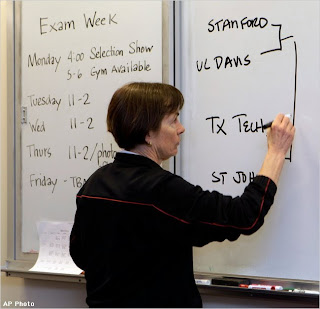 Exam Week
Monday 4:00 Selection Show
5-6 Gym Available
Tuesday 11-2
Wed 11-2
Thurs 11-2/photo
Friday - TBA
STANFORD
UC DAVIS
TX TECH
ST JOH
AP Photo